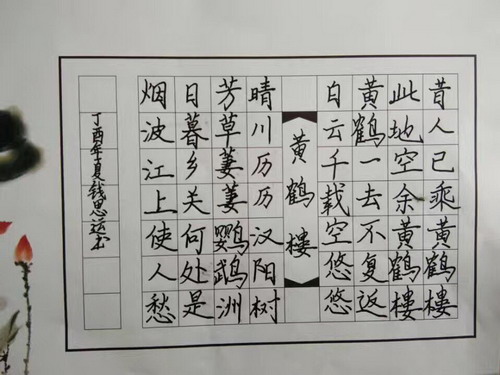 昔人已乘黄鹤樓
此地空余黄鹤樓
黄鹤一去不复返
白云千载空悠悠
黄鹤樓
晴川历历汉阳树
芳草萋萋鹦鹉洲
日暮乡关何处是
烟波江上使人愁
丁酉年夏钱思运书